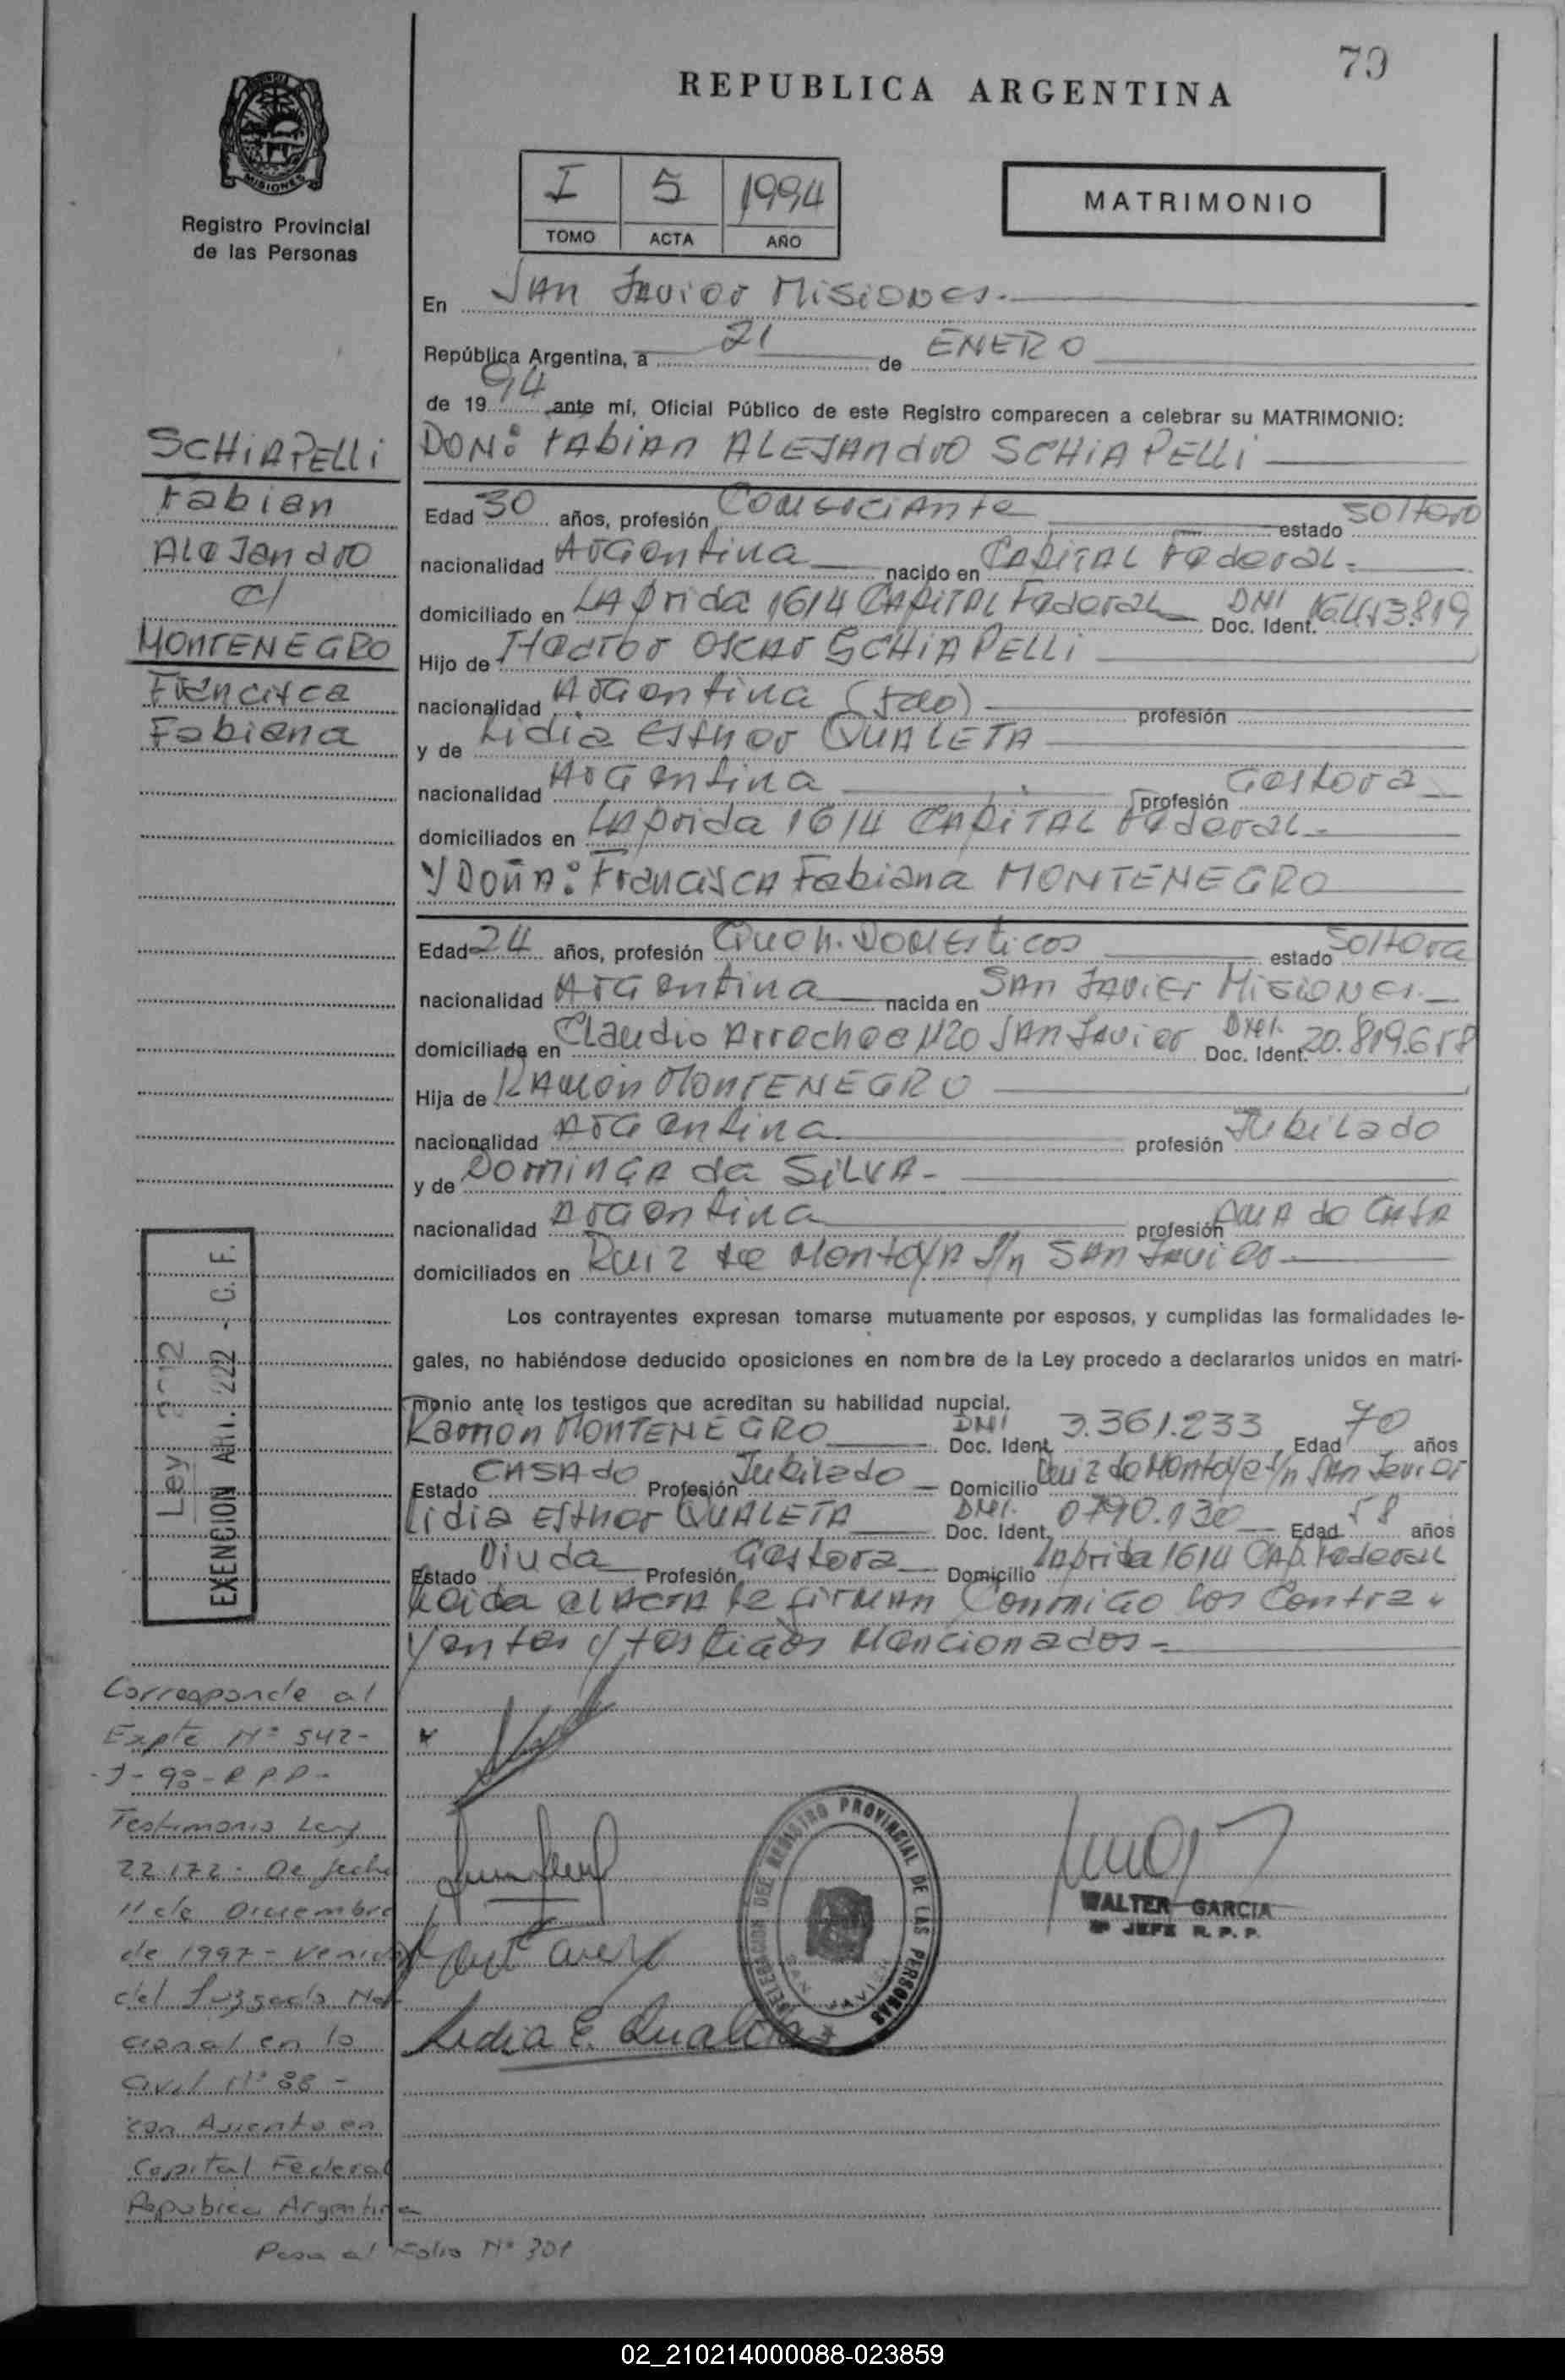 79
REPUBLICA ARGENTINA
MISIONES
Registro Provincial
de las Personas
I 5 1994
TOMO ACTA AÑO
MATRIMONIO
En SAn Javier MisioNes.
República Argentina, a 21 de ENERO
de 1994 ante mí, Oficial Público de este Registro comparecen a celebrar su MATRIMONIO:
SCHiAPELLi
Fabian
AleJandro
c/
MONTENEGRO
Francisca
Fabiana
DON: FAbiAn ALEJAndrO SCHiAPELLi
Edad 30 años, profesión ComerciAnte estado Soltero
nacionalidad Argentina nacido en CAPiTAL Federal.
domiciliado en LAprida 1614 CAPiTAL Federal DNI Doc. Ident. 16.413.819
Hijo de Hector OSCAr SCHiAPELLi
nacionalidad Argentina (fdo) profesión
y de Lidia Esther QUALETA
nacionalidad Argentina profesión Gestora
domiciliados en LAprida 1614 CAPiTAL Federal-
Y DOÑA: FranciscA Fabiana MONTENEGRO
Edad 24 años, profesión Queh. Domesticos estado Soltera
nacionalidad Argentina nacida en SAn JAvier MisioNes.
domiciliada en Claudio Arrechee 1120 SAn JAvier DNI. Doc. Ident. 20.819.658
Hija de RAmón MONTENEGRO
nacionalidad Argentina profesión Jubilado
y de DominGA da SiLVA-
nacionalidad Argentina profesión AmA de CASA
domiciliados en Ruiz de MontoyA s/n SAn Javier
Los contrayentes expresan tomarse mutuamente por esposos, y cumplidas las formalidades le-
gales, no habiéndose deducido oposiciones en nombre de la Ley procedo a declararlos unidos en matri-
monio ante los testigos que acreditan su habilidad nupcial.
Ramón MONTENEGRO DNI Doc. Ident. 3.361.233 Edad 70 años
Estado CASAdo Profesión Jubilado Domicilio Ruiz de Montoya s/n SAn Javier
Lidia Esther QUALETA DNI. Doc. Ident. 0790.130 Edad 58 años
Estado Viuda Profesión Gestora Domicilio Laprida 1614 CAP. Federal
Leida el ActA la firmAn Conmigo los Contra-
yentes y testigos Mencionados-
Ley
EXENCION ART. 222 - C. F.
Corresponde al
Expte Nº 542-
-J-98-R P.P-
Testimonio Ley
22.172- De fecha
11 de Diciembre
de 1997- venido
del Juzgado Na-
cional en lo
Civil Nº 88-
con Asiento en
Capital Federal
Republica Argentina
Pasa al Folio Nº 301
Lidia E. Qualeta
DELEGACION DEL REGISTRO PROVINCIAL DE LAS PERSONAS
SAN JAVIER
WALTER GARCIA
JEFE R. P. P.
02_210214000088-023859